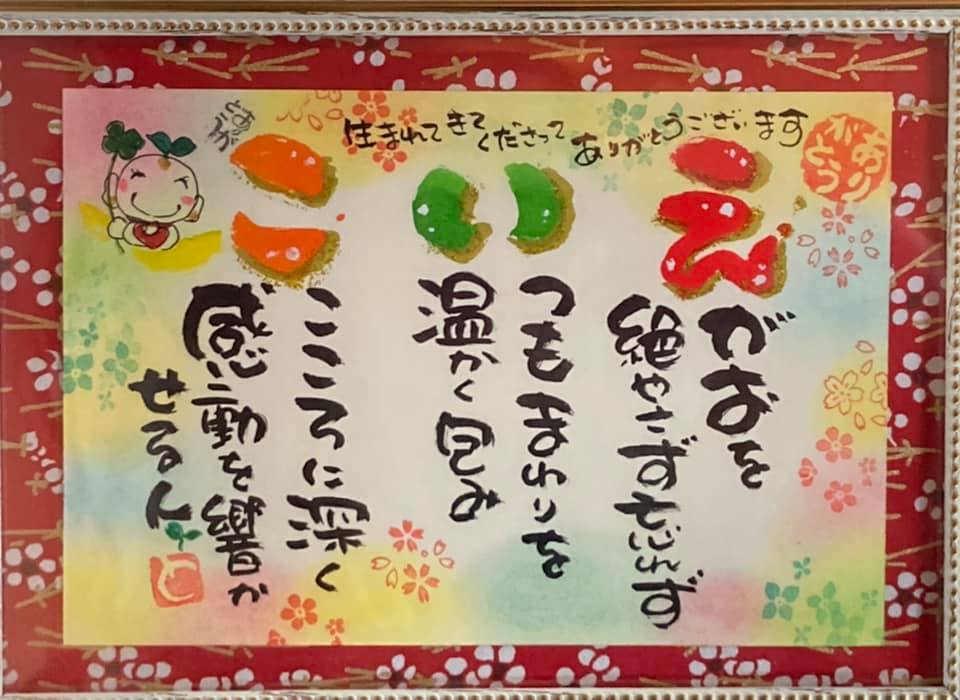 生まれてきてくださってありがとうございます
ありがとう
え
がおを
絶やさず忘れず
い
つもまわりを
温かく包み
こ
こころに深く
感動を響か
せる人